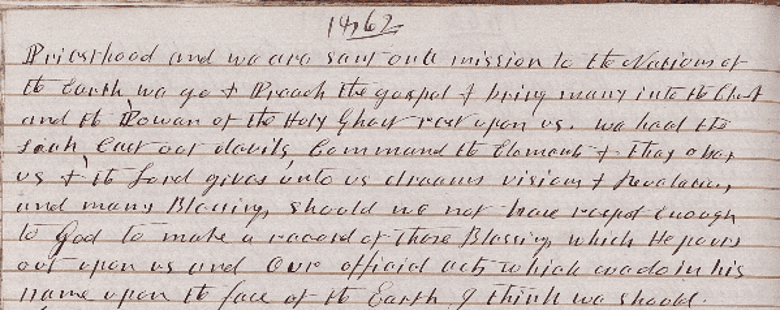 1462
Priesthood and we are sent on a mission to the Nations of
the Earth we go & Preach the gospel & bring many into the Church
and the Power of the Holy Ghost rest upon us. we heal the
sick Cast out devils, Command the Elements & they obey
us & the Lord gives unto us dreams visions & Revelations,
and many Blessings, should we not have respect enough
to God to make a record of those Blessings which He pours
out upon us and our official acts which we do in his
name upon the face of the Earth. I think we should.